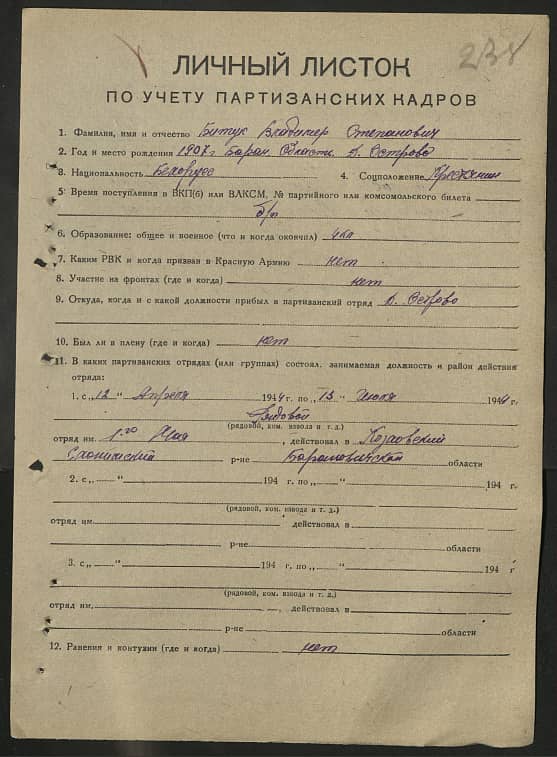 238
ЛИЧНЫЙ ЛИСТОК
ПО УЧЕТУ ПАРТИЗАНСКИХ КАДРОВ
1. Фамилия, имя и отчество Битук Владимер Степанович
2. Год и место рождения 1907 г Баран. Область д. Острово
3. Национальность Белорус 4. Соцположение Крестянин
5. Время поступления в ВКП(б) или ВЛКСМ, № партийного или комсомольского билета
б/п
6. Образование: общее и военное (что и когда окончил) 4 кл
7. Каким РВК и когда призван в Красную Армию нет
8. Участие на фронтах (где и когда) нет
9. Откуда, когда и с какой должности прибыл в партизанский отряд д. Острово
10. Был ли в плену (где и когда) нет
11. В каких партизанских отрядах (или группах) состоял, занимаемая должность и район действия
отряда:
1. с „12 “ Апреля 1944 г. по „13 “ Июля 1944 г.
Рядовой
(рядовой, ком. взвода и т. д.)
отряд им. 1го Мая , действовал в Козловский
Слонимский р-не Барановичской области
2. с „ “ 194 г. по „ “ 194 г.
(рядовой, ком. взвода и т. д.)
отряд им. действовал в
р-не области
3. с „ “ 194 г. по „ “ 194 г
(рядовой, ком. взвода и т. д.)
отряд им. , действовал в
р-не области
12. Ранения и контузии (где и когда) нет